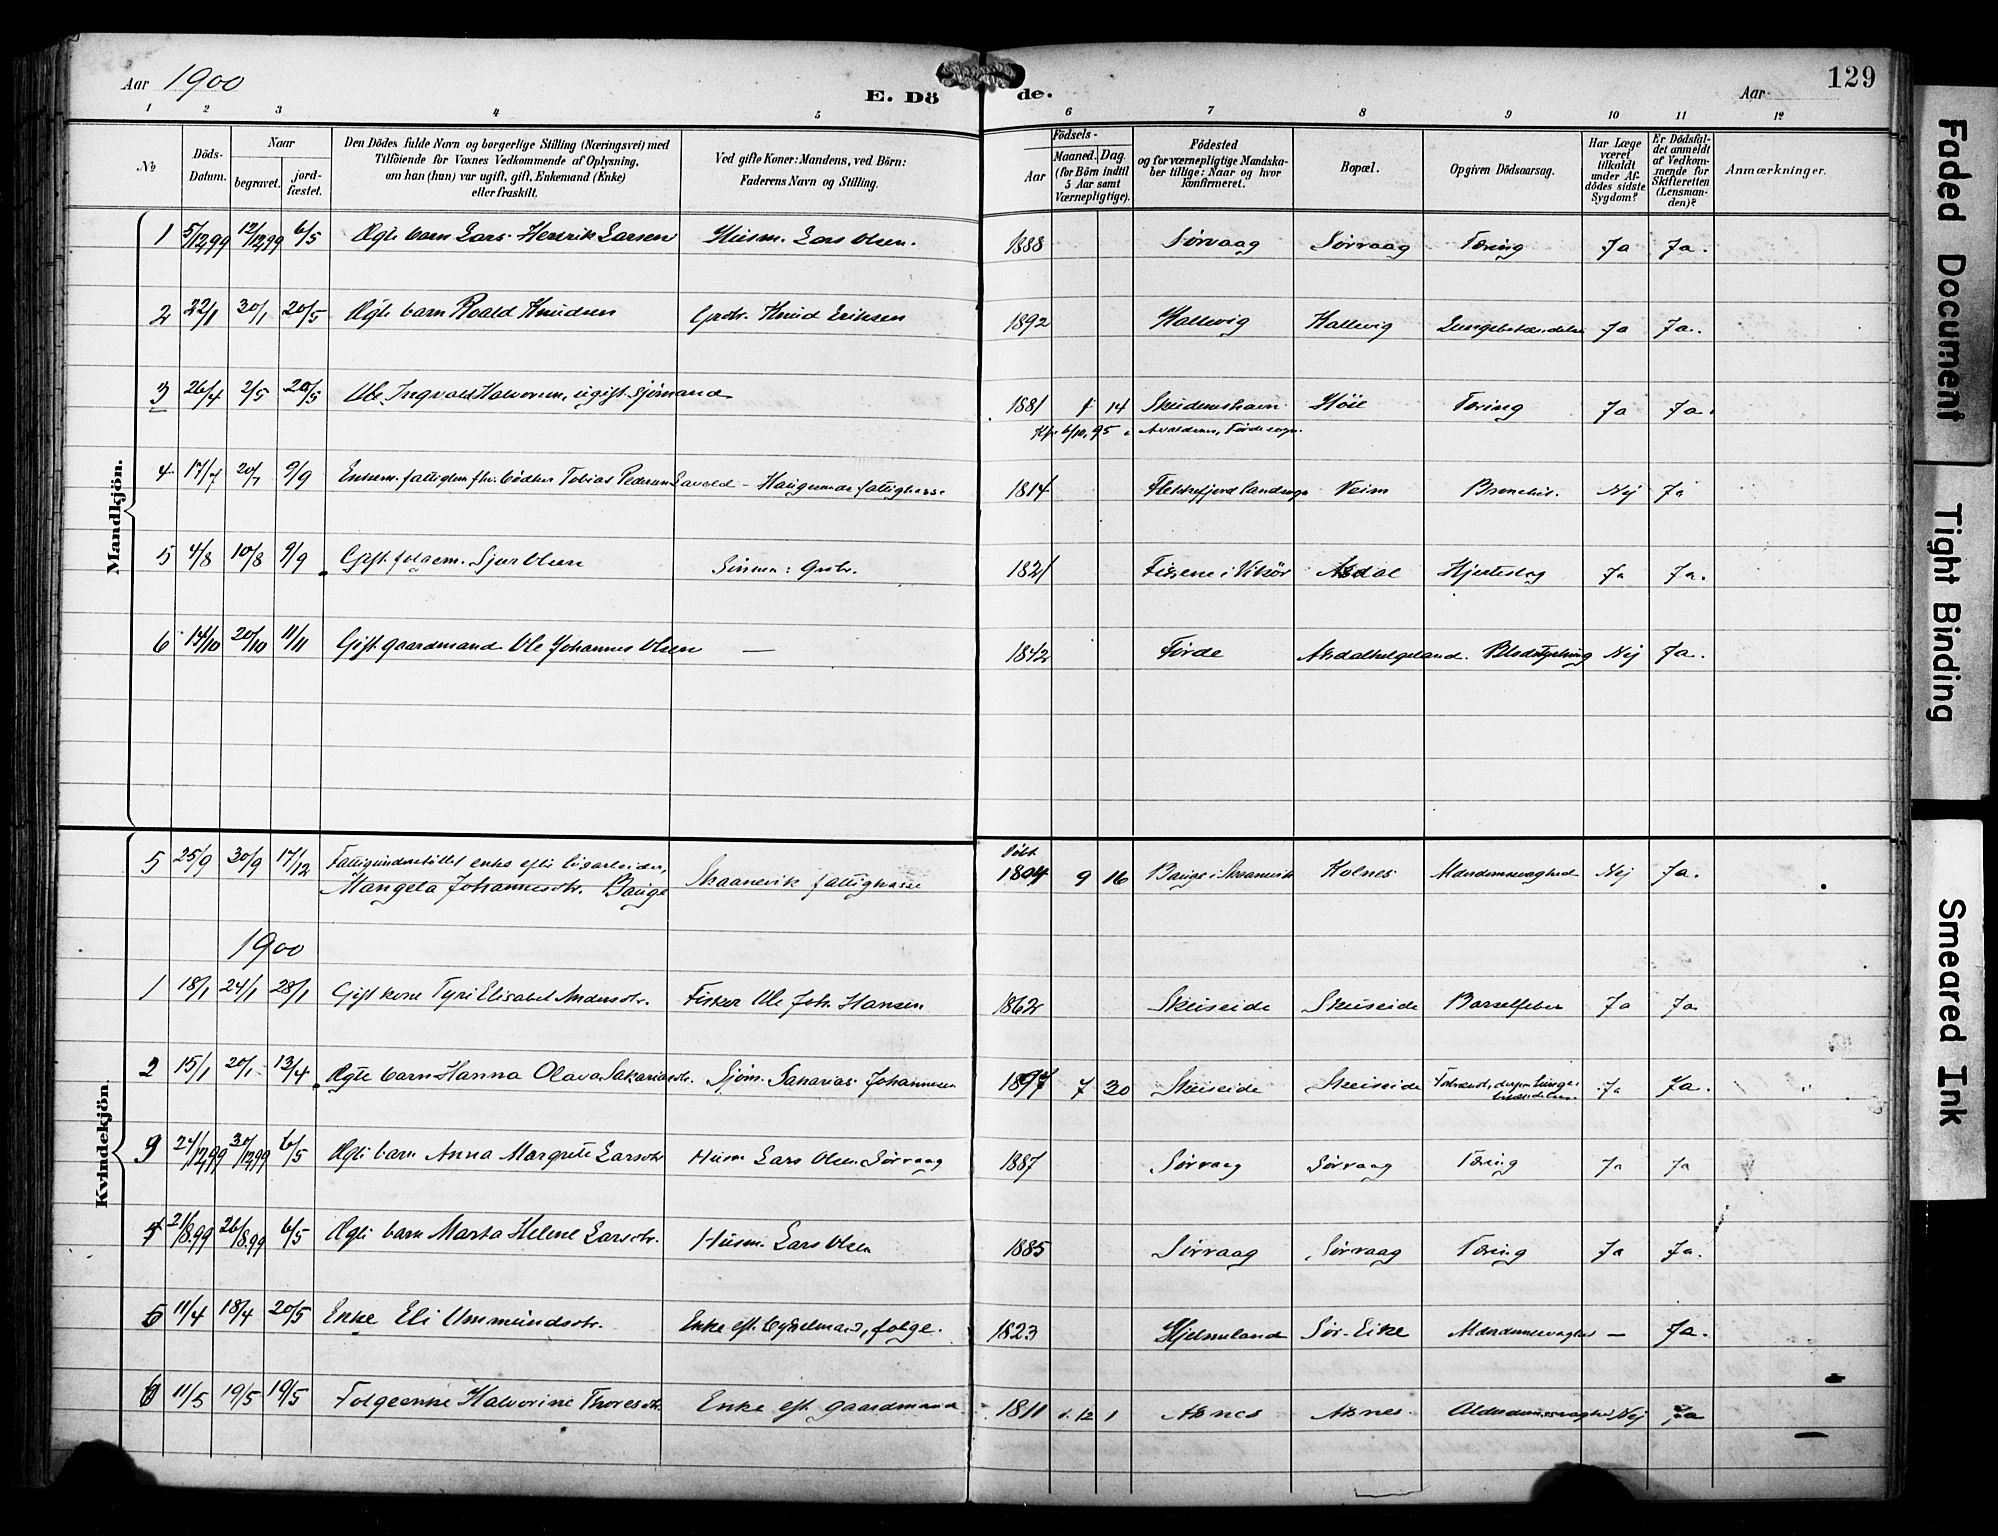 Aar 1900
E. Döde.
Aar
129
1 2 3 4 5 6 7 8 9 10 11 12
No
Döds-Datum.
Naar
begravet.
jord-fæstet.
Den Dödes fulde Navn og borgerlige Stilling (Næringsvei) med
Tilföiende for Voxnes Vedkommende af Oplysning,
om han (hun) var ugift, gift, Enkemand (Enke)
eller fraskilt.
Ved gifte Koner: Mandens, ved Börn:
Faderens Navn og Stilling.
Födsels-
Aar
Maaned. Dag.
(for Börn indtil
5 Aar samt
Værnepligtige).
Födested
og for værnepligtige Mandska-
ber tillige: Naar og hvor
konfirmeret.
Bopæl.
Opgiven Dödsaarsag.
Har Læge
været
tilkaldt
under Af-
dödes sidste
Sygdom?
Er Dödsfal-
det anmeldt
af Vedkom-
mende for
Skifteretten
(Lensman-
den)?
Anmærkninger.
Mandkjön.
1 5/12,99 12/12,99 6/5 Ægte barn Lars Henrik Larsen Husm. Lars Olsen. 1888 Sørvaag Sørvaag Tæring Ja Ja.
2 22/1 30/1 20/5 Ægte barn Roald Knudsen Grdbr. Knud Eriksen 1892 Hallevig Hallevig Lungebetændelse Ja Ja.
3 26/4 2/5 20/5 Ole Ingvald Halvorsen, ugift Sjømand 1881 1 14 Skudeneshavn Høie Tæring Ja Ja.
Kfr. 6/10,95 i Avaldsnes, Førde sogn.
4 17/7 20/7 9/9 Enkem. fattiglem fhv. bødker Tobias Pedersen Lavold – Haugesunds fattigkasse 1814 Flekkefjord landsogn Veim Bronchit. Nej Ja
5 4/8 10/8 9/9 Gift folgem. Sjur Olsen Sønnen: Grdbr. 1821 Fixsene i Vikør Aksdal Hjerteslag Ja Ja.
6 14/10 20/10 11/11 Gift gaardmand Ole Johannes Olsen — 1842 Førde Aksdalhelgeland. Blodstyrtning Nej Ja.
Kvindekjön.
5 25/9 30/9 17/12 Fattigunderstøttet enke efter løsarbeider,
Mangela Johannesdtr. Bauge Skaanevik fattigkasse født 1804 9 16 Bauge i Skaanevik Holnes Alderdomssvaghed Nej Ja.
1900
1 18/1 24/1 28/1 Gift kone Tyri Elisabet Andersdtr. Fisker Ole Joh. Hansen 1862 Skeiseide Skeiseide Barselfeber Ja Ja
2 15/1 20/1 13/4 Ægte barn Hanna Olava Sakariasdtr. Sjøm. Sakarias Johannesen 1897 7 30 Skeiseide Skeiseide Ja Ja.
3 24/12,99 30/12,99 6/5 Ægte barn Anna Margrete Larsdtr. Husm Lars Olsen Sørvaag 1887 Sørvaag Sørvaag Tæring Ja Ja
4 21/8.99 26/8.99 6/5 Ægte barn Marta Helene Larsdtr. Husm. Lars Olsen 1885 Sørvaag Sørvaag Tæring Ja Ja.
5 11/4 18/4 20/5 Enke Eli Ommundsdtr. Enke eft. bygselmand, folge. 1823 Hjelmeland Sør-Eike Alderdomssvaghed — Ja.
6 11/5 19/5 19/5 Folgeenke Halvorine Thoresdtr. Enke eft. gaardmand 1811 12 1 Aksnes Aksnes. Alderdomssvaghed Nej Ja
Faded Document
Tight Binding
Smeared Ink